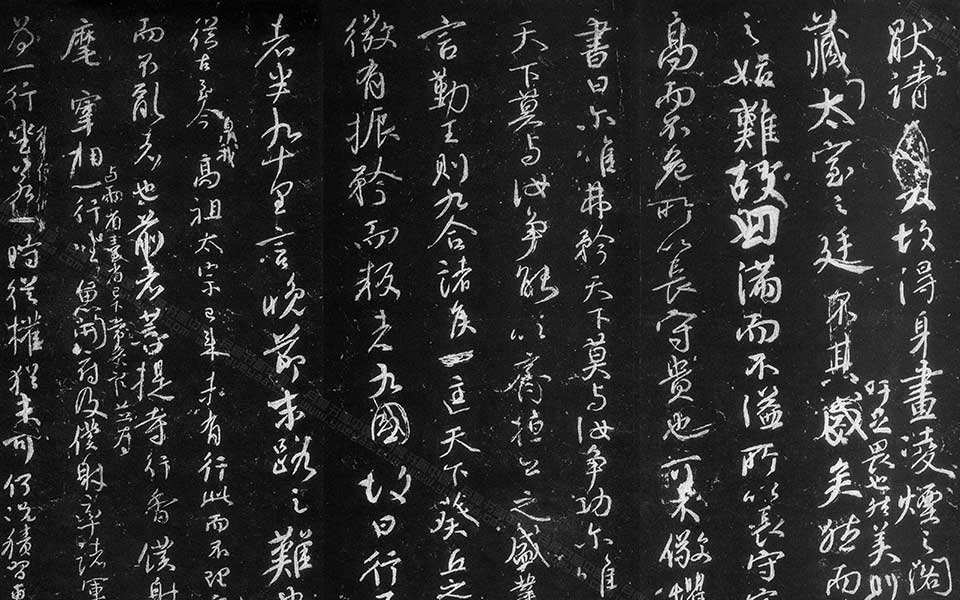 猒之請 故得身畫凌煙之閣
藏太室之廷 其盛矣然而
吁足畏也然美則
之始難故曰滿而不溢所以長守富
高而不危所以長守貴也可不儆懼
書曰尔唯弗矜天下莫与汝爭功尔唯
天下莫与汝爭能以齊桓公之盛業
言勤王則九合諸侯一匡天下葵丘之
微有振矜而叛者九國故曰行百
者半九十里言晚節末路之難也
從古至今 高祖太宗已來未有行此而不理
而不亂者也前者菩提寺行香僕射
麾宰相与兩省臺省已下常參官並為一行坐魚開府及僕射率諸軍
為一行坐若一時從權猶未可何況積習更